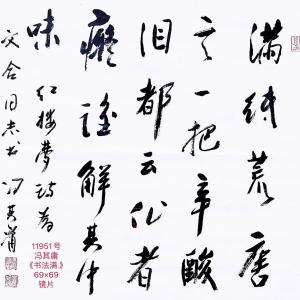 满纸荒唐
言一把辛酸
泪都云作者
癡谁解其中
味 红楼梦诗为
文合同志书 冯其庸
11951号
冯其庸
《书法满.》
69×69
镜片